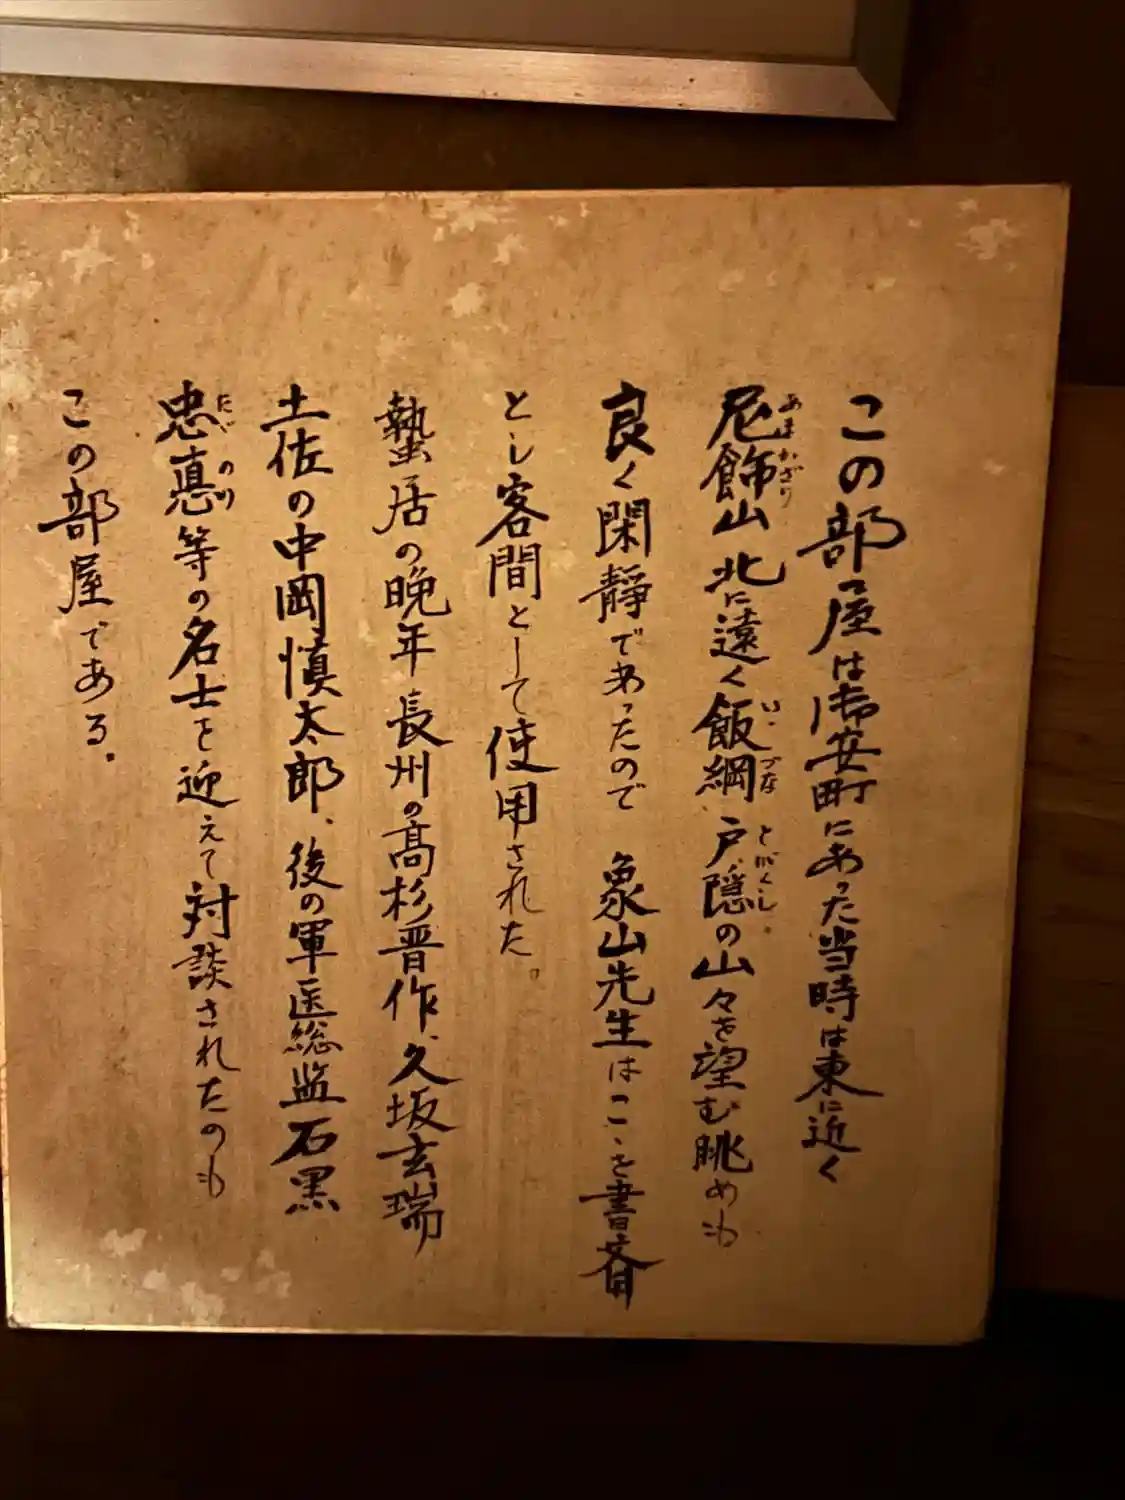 この部屋は御安町にあった当時は東に近く
尼飾山 北に遠く飯綱、戸隠の山々を望む眺めも
良く閑静であったので 象山先生はこゝを書斉
とし客間として使用された。
蟄居の晩年 長州の高杉晋作、久坂玄瑞
土佐の中岡慎太郎、後の軍医総監石黒
忠悳等の名士を迎えて対談されたのも
この部屋である.